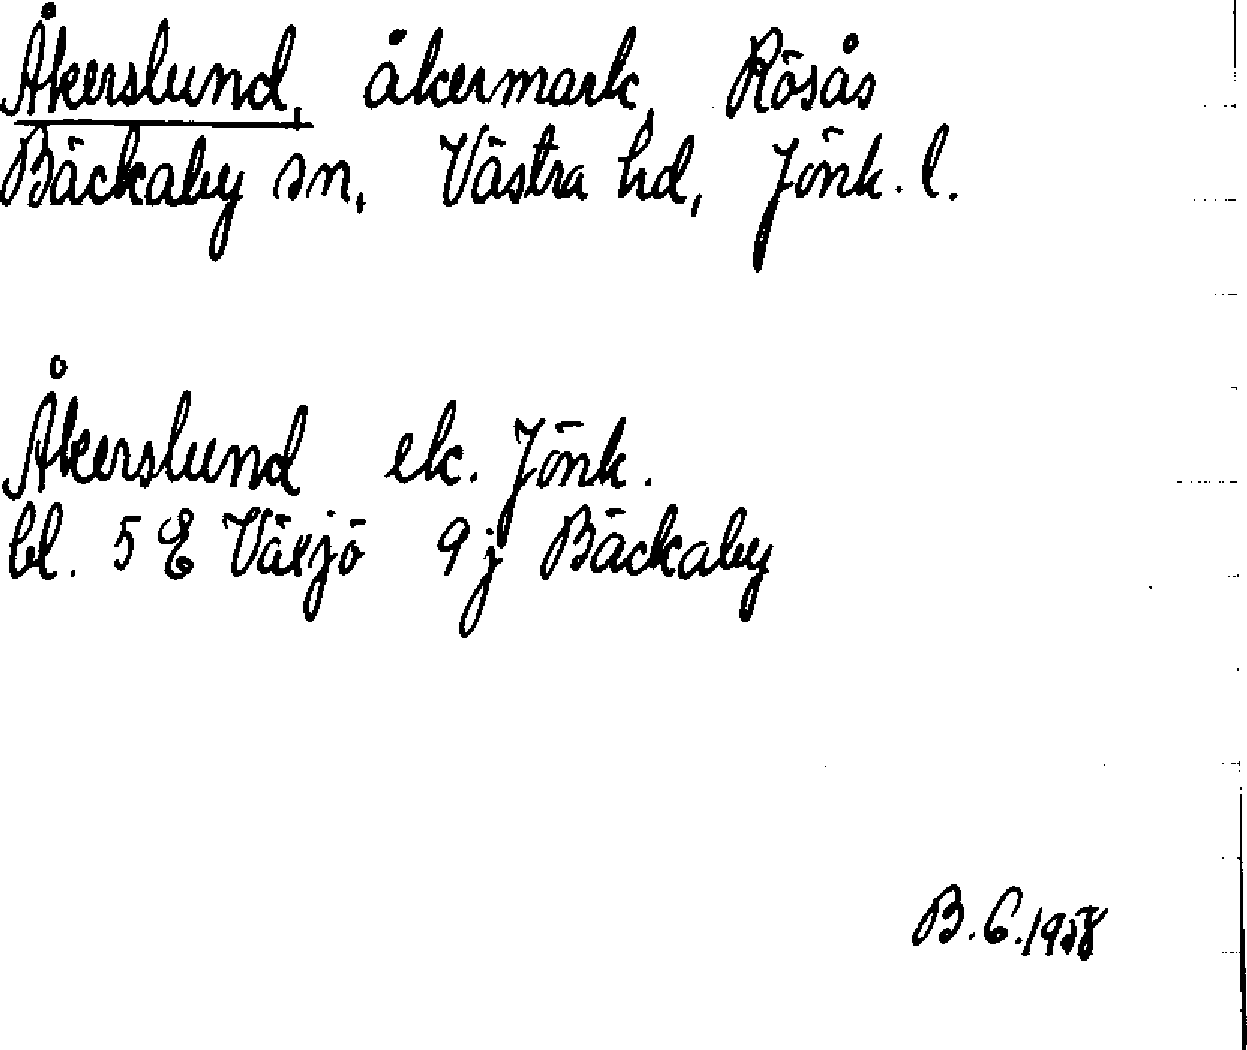 Åkerslund, åkermark, Rösås
Bäckaby sn, Västra hd, Jönk. l.
Åkerslund ek. Jönk.
bl. 5 E Växjö 9 j Bäckaby
B. E. 1958